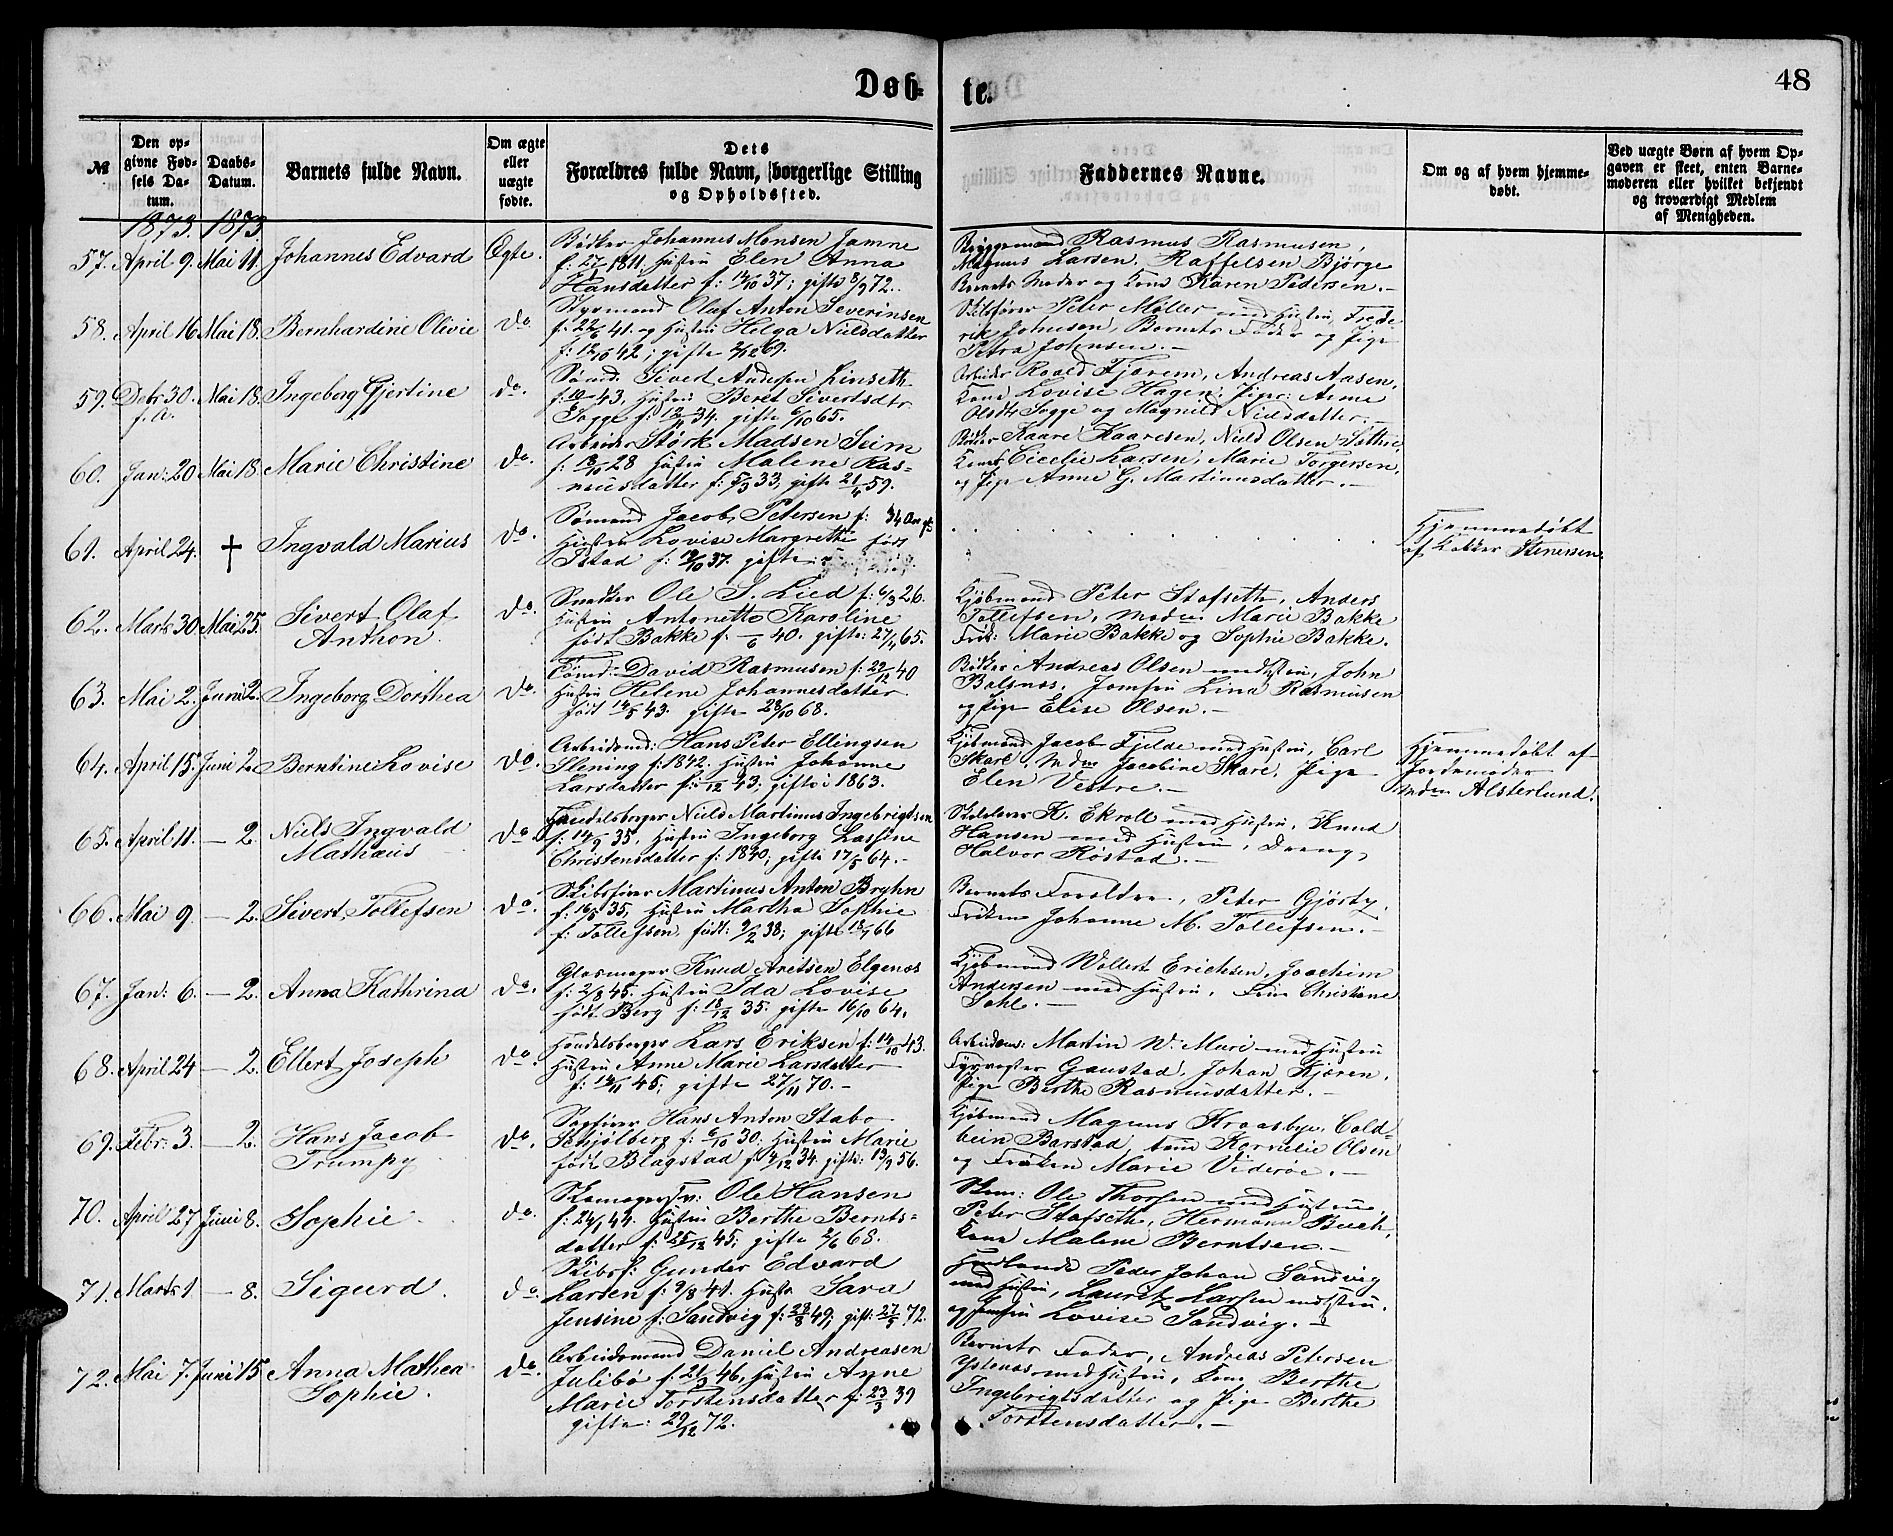 Døb-
te.
48
№
Den op-
givne Fød-
sels Da-
tum.
Daabs-
Datum.
Barnets fulde Navn.
Om ægte
eller
uægte
fødte.
Dets
Forældres fulde Navn, borgerlige Stilling
og Opholdssted.
Faddernes Navne.
Om og af hvem hjemme-
døbt.
Ved uægte Børn af hvem Op-
gaven er skeet, enten Barne-
moderen eller hvilket bekjendt
og troværdigt Medlem
af Menigheden.
1873. 1873
57. April 9. Mai 11. Johannes Edvard Ægte.
Bødker Johannes Monsen Jamne
f: 27/ 1811, Hustru Elen Anna
Hansdatter f: 14/10 37; gifte 8/9 72.
Rasmus Rasmusen,
Magnus Larsen, Raffelsen Bjørge
Barnets Moder og Kone Karen Pedersen.-
58. April 16 Mai 18. Bernhardine Olivie do.
Styrmand Olaf Anton Severinsen
f: 22/6 41. og Hustru Helga Nielsdatter
f: 12/10 42; gifte 2/12 69.
Skibsfører Peter Møller med Hustru, Frede
rik Johnsen, Barnets Fader og Pige
Petra Johnsen.-
59. Debr 30. f. A. Mai 18. Ingeborg Gjertine do.
Sømd. Sivert Andersen Linseth
43, Hustru Beret Sivertsdtr
Sogge f: 12/11 34. gifte 6/10 65.
Arbeider Roald Fjørem, Andreas Aasen,
Kone Lovise Hagen, Piger: Anne
Olsdtr Sogge og Magnild Nielsdatter.
60. Jan: 20 Mai 18. Marie Christine do.
Arbeider Størk Madsen Seim
28 Hustru Malene Ras-
musdatter f: 5/3 33, gifte 21/4 59.
Kaare Kaaresen, Niels Olsen Sættre,
Cicelie Larsen, Marie Torgersen,
og Pige Anne G. Martinusdatter.-
61. April 24. † Ingvald Marius do.
Sømand Jacob Petersen f: 34 Aar gl:
Hustru Lovise Margrethe født
Istad f: 19/10 37. gifte
Hjemmedøbt
af Klokker Stenersen
62. Marts 30 Mai 25. Sivert Olaf
Anthon. do.
Snedker Ole S. Lied f: 6/3 26.
Hustru Antonette Karoline
født Bakke f: -/6 40. gifte: 27/4 65.
Kjøbmand Peter Stafseth, Anders
Tollefsen, Madm Marie Bakke
Frkn: Marie Bakke og Sophie Bakke.
63. Mai 2. Juni 2. Ingeborg Dorthea do.
Tømd: David Rasmusen f: 22/12 40
Hustru Helene Johannesdatter
født 14/5 43. gifte 28/10 68.
Bødker Andreas Olsen med Hustru, John
Balsnes, Jomfru Lina Rasmusen
og Pige Elise Olsen.-
64. April 15. Juni 2. Berntine Lovise do.
Arbeidsmd: Hans Peter Ellingsen
Flening f: 1842. Hustru Johanne
Larsdatter f: /12 43; gifte i 1863.
Kjøbmand Jacob Fjelde med Hustru, Carl
Skare, Mdm Jacobine Skare, Pige
Elen Vestre.-
Hjemmedøbt af
Jordemoder
Mdm Alsterlund.
65. April 11. - 2. Niels Ingvald
Mathæus do.
Handelsborger Niels Martinus Ingebrigtsen
f: 14/9 35, Hustru Ingeborg Lassine
Christensdatter f: 1840; gifte 17/5 64.-
Skolelærer K. Ekroll med Hustru, Knud
Hansen med Hustru, Dreng
Halvor Røstad.-
66. Mai 9. - 2. Sivert Tollefsen do.
Skibsfører Martinus Anton Bryhn
f: 16/5 35, Hustru Martha Sophie
f: Tollefsen født: 9/2 38; gifte 18/7 66
Barnets Forældre, Peter Gjørtz,
Frøken Johanne M. Tollefsen.-
67. Jan: 6. - 2. Anna Kathrina do.
Glasmager Knud Aretsen Elgenes
f: 2/8 45. Hustru Ida Lovise
født Berg f: 18/12 35. gifte 16/10 64.
Kjøbmand Wollert Erichsen, Joachim
Andersen med Hustru, Frøn Christiane
Dahl.-
68. April 24 - 2. Ellert Joseph do.
Handelsborger Lars Eriksen f: 14/10 43.
Hustru Anne Marie Larsdatter
f: 14/11 45; gifte 27/11 70.-
Arbeidsm: Martin W. Mari med Hustru
Fyrvogter Gaustad, Johan Kjøren,
Pige Berthe Rasmusdatter.-
69. Febr: 3. - 2. Hans Jacob
Trumpy do.
Hans Anton Stabo
Schjølberg f: 6/10 30; Hustru Marie
født Blagstad f: 4/12 34. gifte: 13/9 56.
Kjøbmand Magnus Kraasbye, Cold-
bein Barstad, Kornelie Olsen
og Frøken Marie Viderøe.-
70. April 27 Juni 8. Sophie. do.
Skomagersv: Ole Hansen
f: 24/1 44. Hustru Berthe Bernts-
datter f: 25/12 45; gifte 2/6 68.
Skom: Ole Thorsen med Hustru,
Peter Stafseth, Hermann Buch,
Kone Malene Berntsen.-
71. Marts 1 - 8. Sigurd. do.
Skibsf: Gunder Edvard
Larsen f: 9/8 41. Hustr. Sara
Jensine f: Sandvig f: 28/8 49; gift: 27/5 72.
Peder Johan Sandvig
med Hustru, Lauritz Larsen m Hstru.
og Jomfru Lovise Sandvig.-
72. Mai 7. Juni 15 Anna Mathea
Sophie. do.
Arbeidsmand Daniel Andreasen
Julibø f: 21/3 46, Hustru Anne
Marie Torstensdatter f: 23/3 39
gifte: 29/12 72.
Barnets Fader, Andreas Petersen
Ystenes med Hustru, Kone Berthe
Ingebrigtsdatter og Pige Berthe
Torstensdatter.-